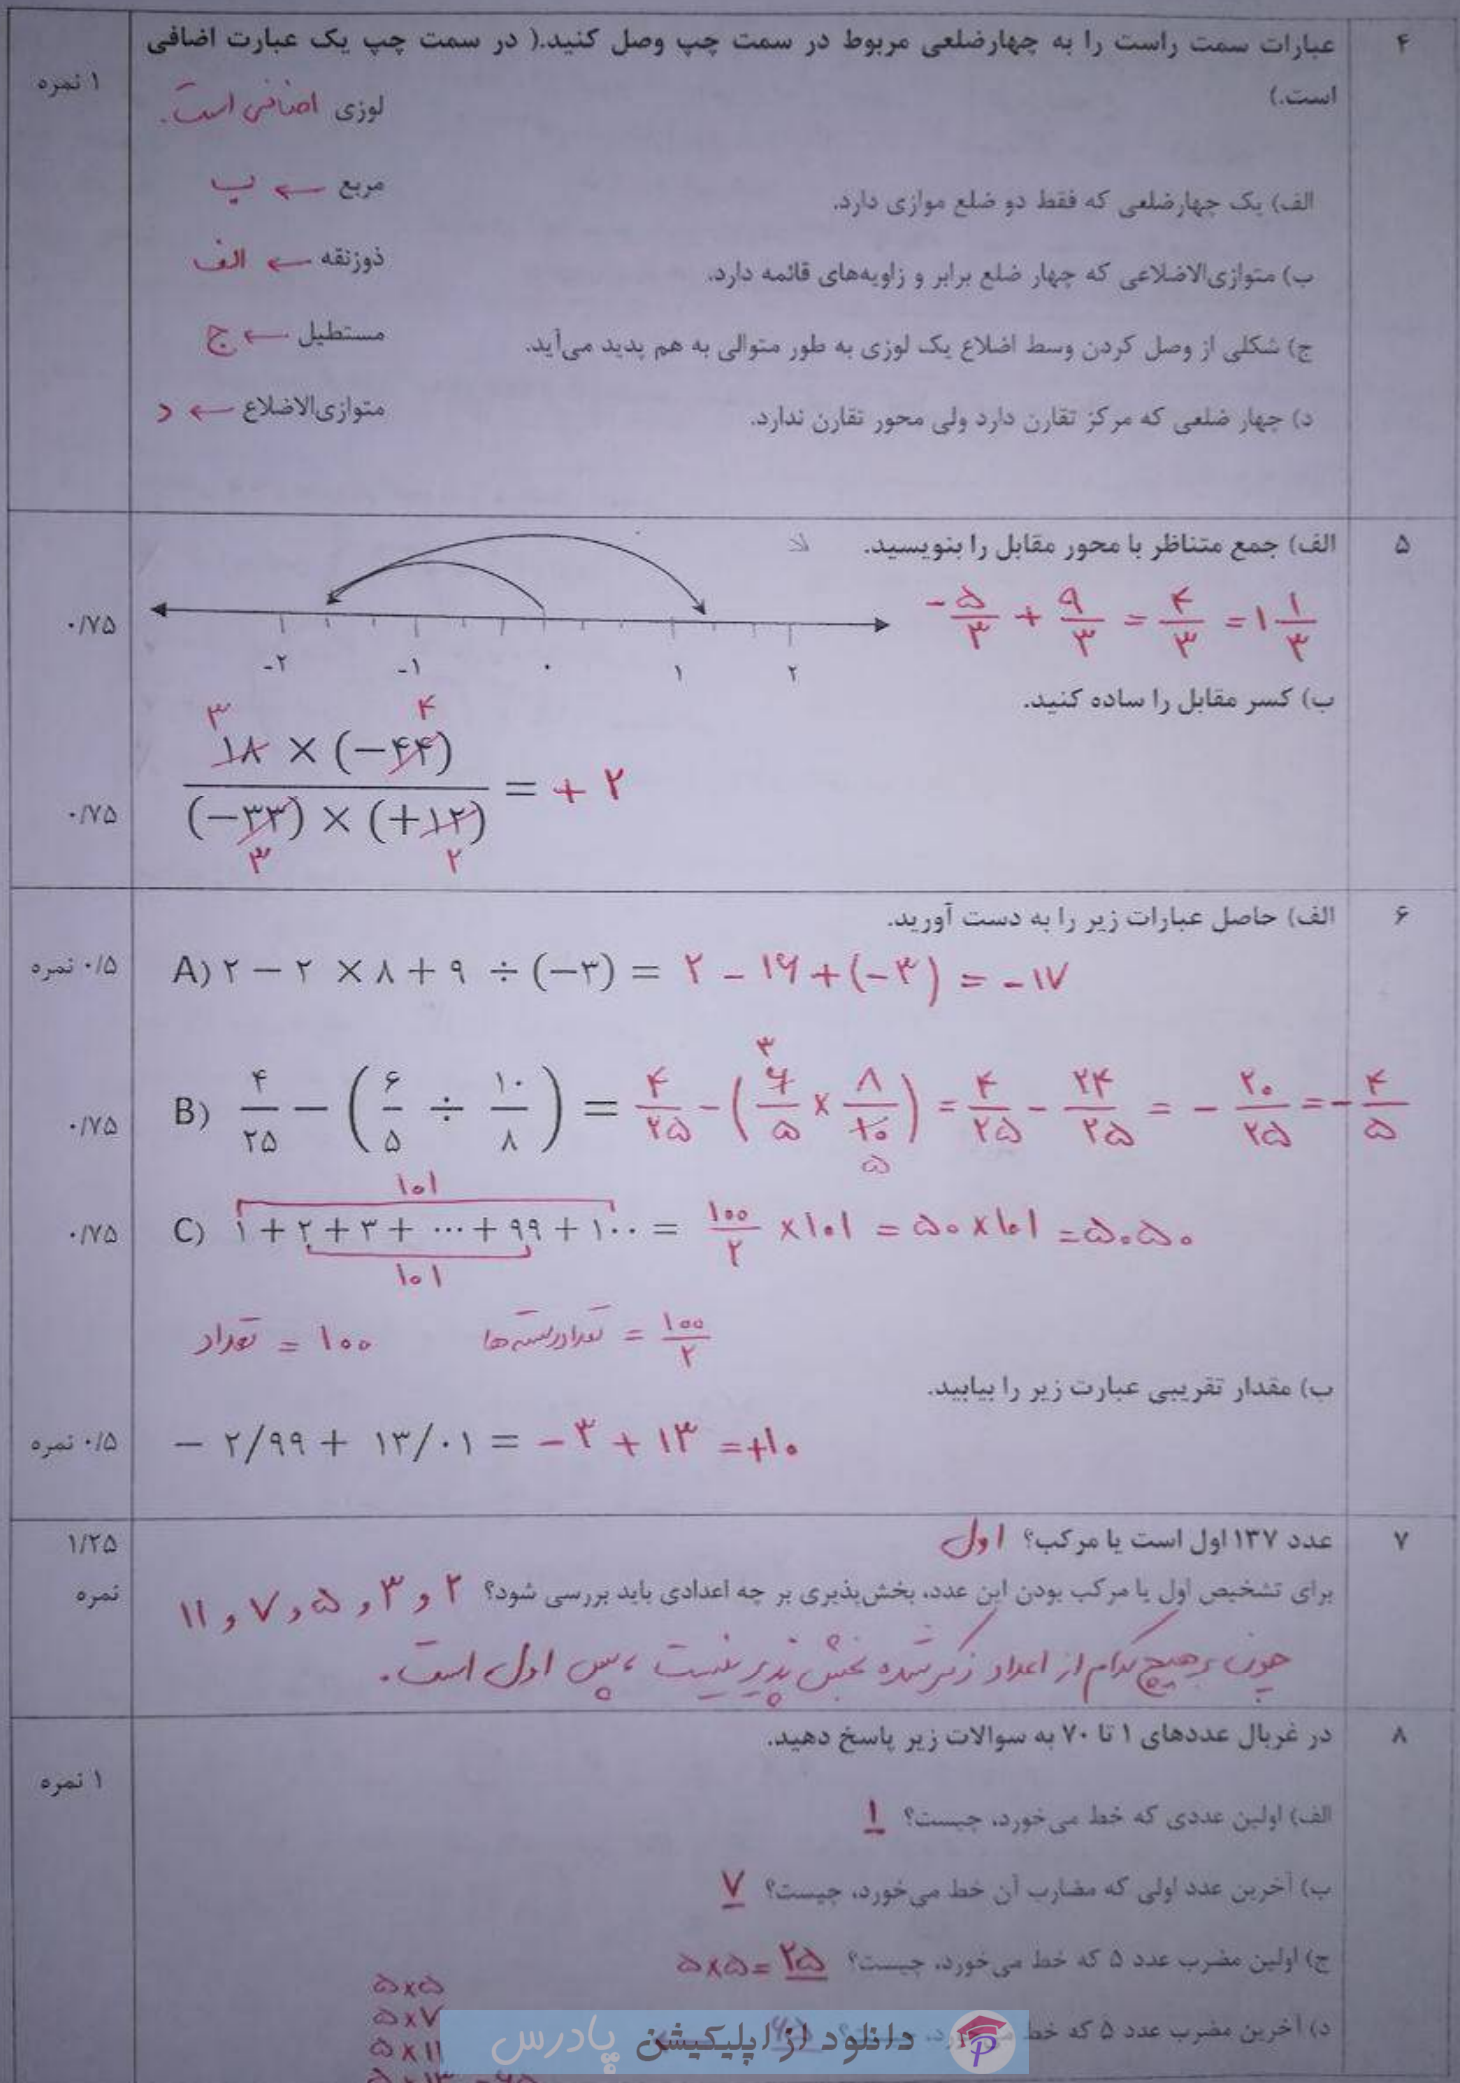 ۴
عبارات سمت راست را به چهارضلعی مربوط در سمت چپ وصل کنید.( در سمت چپ یک عبارت اضافی
است.)
۱ نمره
لوزی اضافی است.
الف) یک چهارضلعی که فقط دو ضلع موازی دارد.
مربع ← ب
ب) متوازی‌الاضلاعی که چهار ضلع برابر و زاویه‌های قائمه دارد.
ذوزنقه ← الف
ج) شکلی از وصل کردن وسط اضلاع یک لوزی به طور متوالی به هم پدید می‌آید.
مستطیل ← ج
د) چهار ضلعی که مرکز تقارن دارد ولی محور تقارن ندارد.
متوازی‌الاضلاع ← د
۵
الف) جمع متناظر با محور مقابل را بنویسید.
-۵/۳ + ۹/۳ = ۴/۳ = ۱ ۱/۳
۰/۷۵
-۲ -۱ ۰ ۱ ۲
ب) کسر مقابل را ساده کنید.
۳ ۴
۱۸ × (−۴۴)
= + ۲
(−۳۳) × (+۱۲)
۳ ۲
۰/۷۵
۶
الف) حاصل عبارات زیر را به دست آورید.
A) ۲ − ۲ × ۸ + ۹ ÷ (−۳) = ۲ - ۱۶ + (-۳) = -۱۷
۰/۵ نمره
B) ۴/۲۵ − (۶/۵ ÷ ۱۰/۸) = ۴/۲۵ - (۶/۵ × ۸/۱۰) = ۴/۲۵ - ۲۴/۲۵ = - ۲۰/۲۵ = - ۴/۵
۳
۵
۰/۷۵
۱۰۱
C) ۱ + ۲ + ۳ + ⋯ + ۹۹ + ۱۰۰ = ۱۰۰/۲ × ۱۰۱ = ۵۰ × ۱۰۱ = ۵۰۵۰
۰/۷۵
۱۰۱
تعداد = ۱۰۰ تعداد دسته ها = ۱۰۰/۲
ب) مقدار تقریبی عبارت زیر را بیابید.
− ۲/۹۹ + ۱۳/۰۱ = -۳ + ۱۳ = +۱۰
۰/۵ نمره
۷
عدد ۱۳۷ اول است یا مرکب؟ اول
۱/۲۵
نمره
برای تشخیص اول یا مرکب بودن این عدد، بخش‌پذیری بر چه اعدادی باید بررسی شود؟ ۲ و ۳ و ۵ و ۷ و ۱۱
چون بر هیچ کدام از اعداد ذکر شده بخش پذیر نیست، پس اول است.
۸
در غربال عددهای ۱ تا ۷۰ به سوالات زیر پاسخ دهید.
۱ نمره
الف) اولین عددی که خط می‌خورد، چیست؟ ۱
ب) آخرین عدد اولی که مضارب آن خط می‌خورد، چیست؟ ۷
ج) اولین مضرب عدد ۵ که خط می‌خورد، چیست؟ ۲۵ = ۵×۵
د) آخرین مضرب عدد ۵ که خط
۵×۵
۵×۷
۵×۱۱
دانلود از اپلیکیشن پادرس